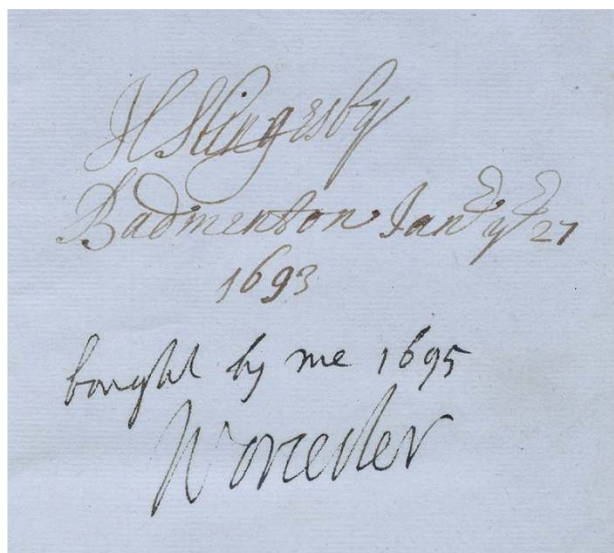 H Slingesby
Badmenton Jan ye 27
1693
bought by me 1695
Worcester